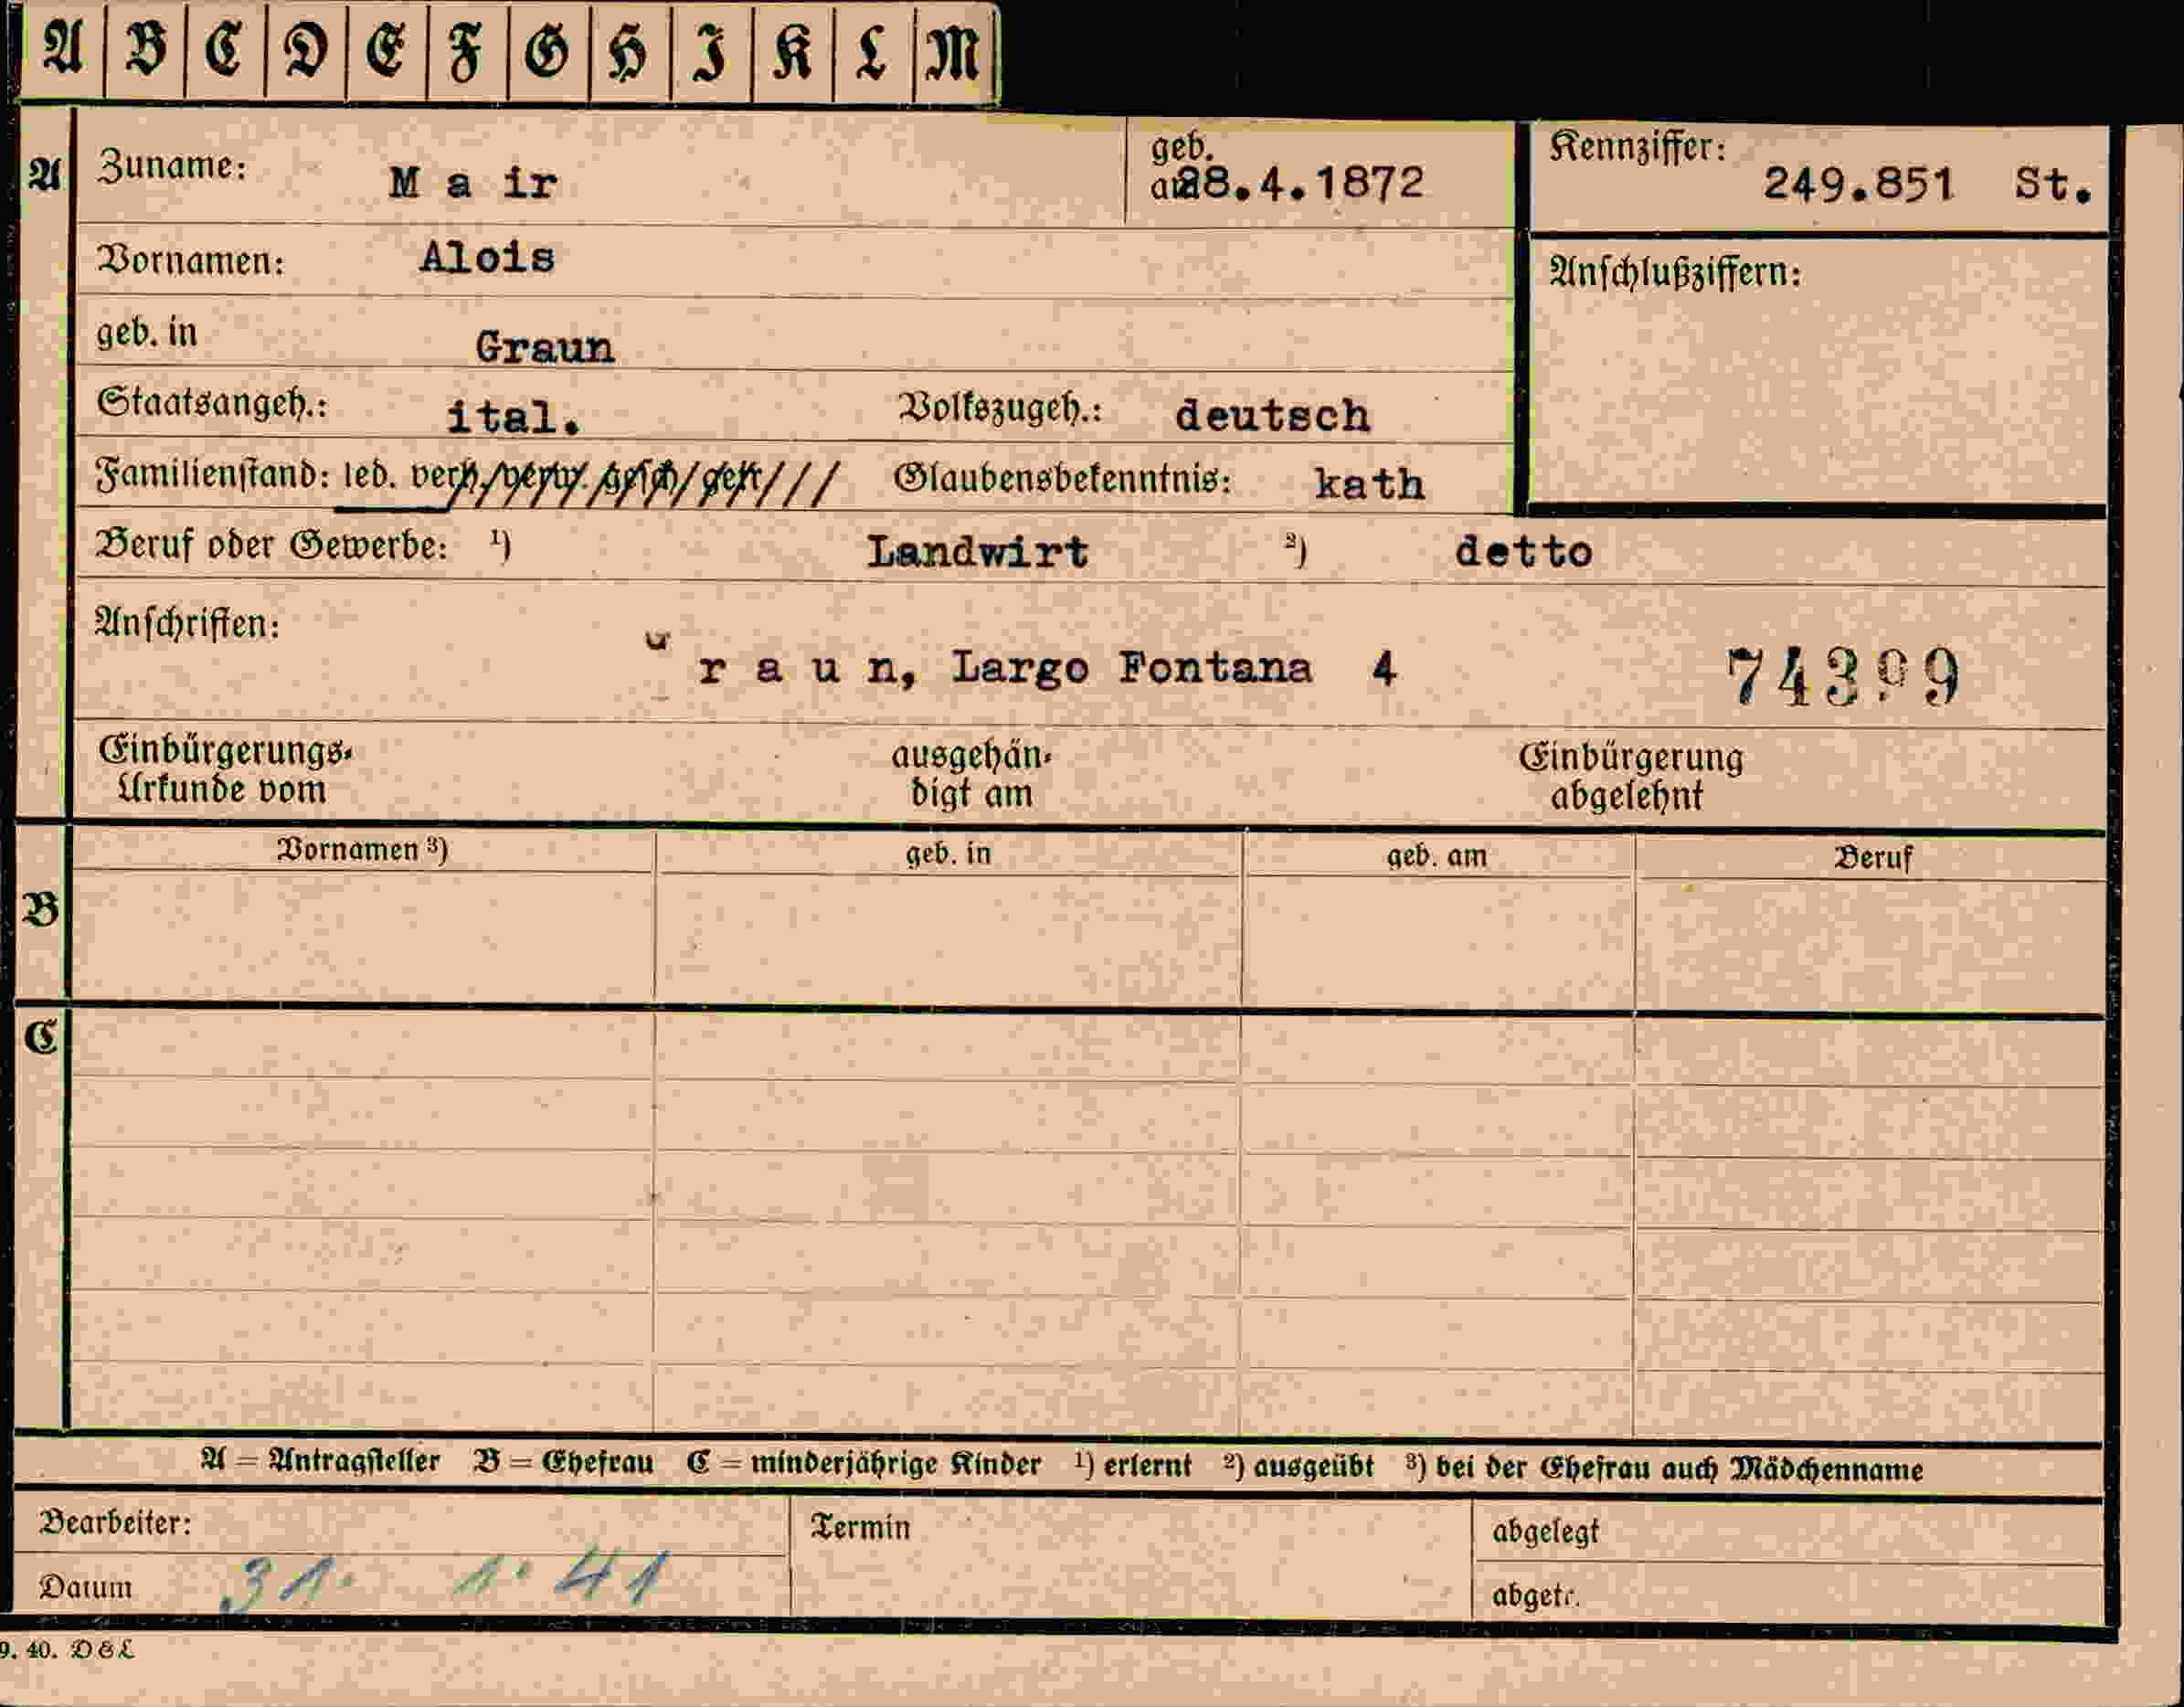 A B C D E F G H I K L M
A Zuname: M a ir geb. am 28.4.1872 Kennziffer: 249.851 St.
Vornamen: Alois Anschlußziffern:
geb. in Graun
Staatsangeh.: ital. Volkszugeh.: deutsch
Familienstand: led. verh. verw. gesch. getr. Glaubensbekenntnis: kath
Beruf oder Gewerbe: ¹) Landwirt ²) detto
Anschriften: G r a u n, Largo Fontana 4 74399
Einbürgerungs- ausgehän- Einbürgerung
Urkunde vom digt am abgelehnt
Vornamen ³) geb. in geb. am Beruf
B
C
A = Antragsteller B = Ehefrau C = minderjährige Kinder ¹) erlernt ²) ausgeübt ³) bei der Ehefrau auch Mädchenname
Bearbeiter: Termin abgelegt
Datum 31. 1. 41 abgetr.
9. 40. D & L